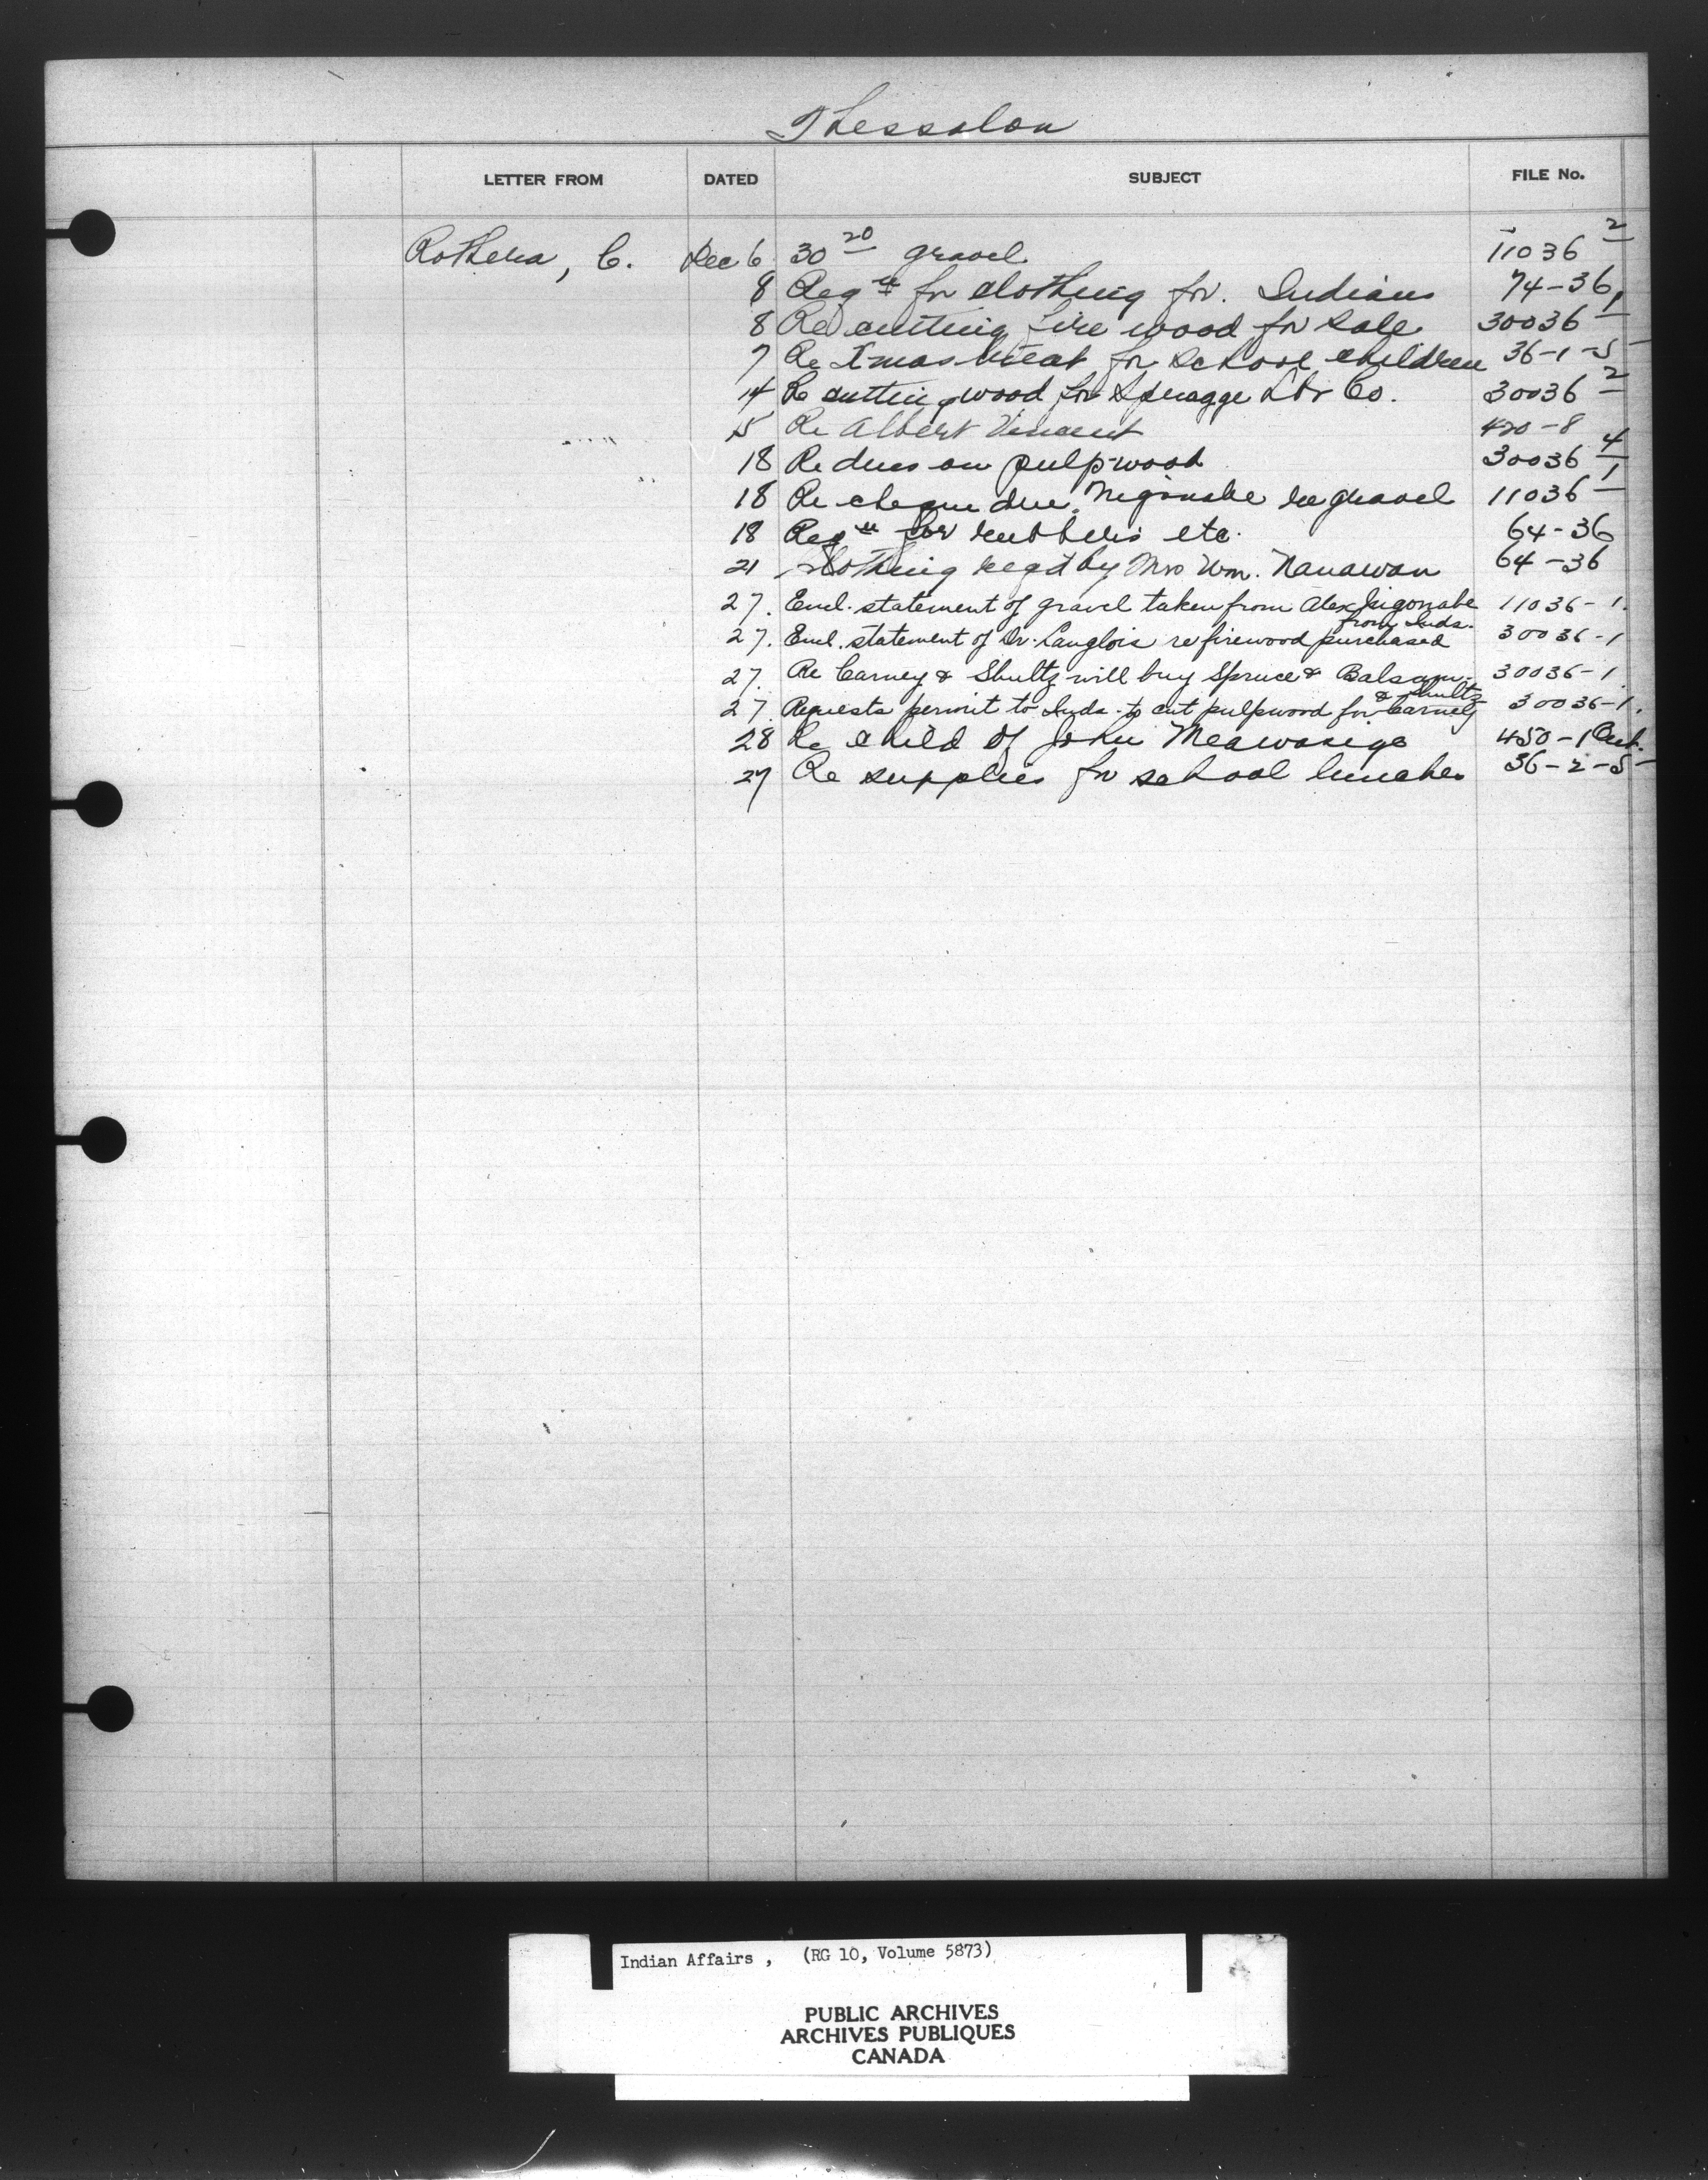 Thessalon
LETTER FROM DATED SUBJECT FILE No.
Rothera, C. Dec 6 30 20 gravel 11036 2
8 Reqn for clothing for Indians 74-36
8 Re cutting fire wood for sale 30036 1
7 Re Xmas treat for school children 36-1-5
14 Re cutting wood for Spragge Lbr Co. 30036 2
15 Re Albert Vincent 420-8
18 Re dues on pulpwood 30036 4
18 Re cheque due Nigonabe re gravel 11036 1
18 Reqn for rubbers etc. 64-36
21 Clothing reqd by Mrs Wm. Nanawan 64-36
27. Encl. statement of gravel taken from Alex Nigonabe 11036-1.
from Inds.
27. Encl. statement of Dr. Langlois re firewood purchased 30036-1
27. Re Carney & Shultz will buy Spruce & Balsam 30036-1
& Shultz
27. Requests permit to Inds. to cut pulpwood for Carney 30036-1.
28 Re child of John Meawasige 450-1
27 Re supplies for school lunches 36-2-5
Indian Affairs , (RG 10, Volume 5873)
PUBLIC ARCHIVES
ARCHIVES PUBLIQUES
CANADA